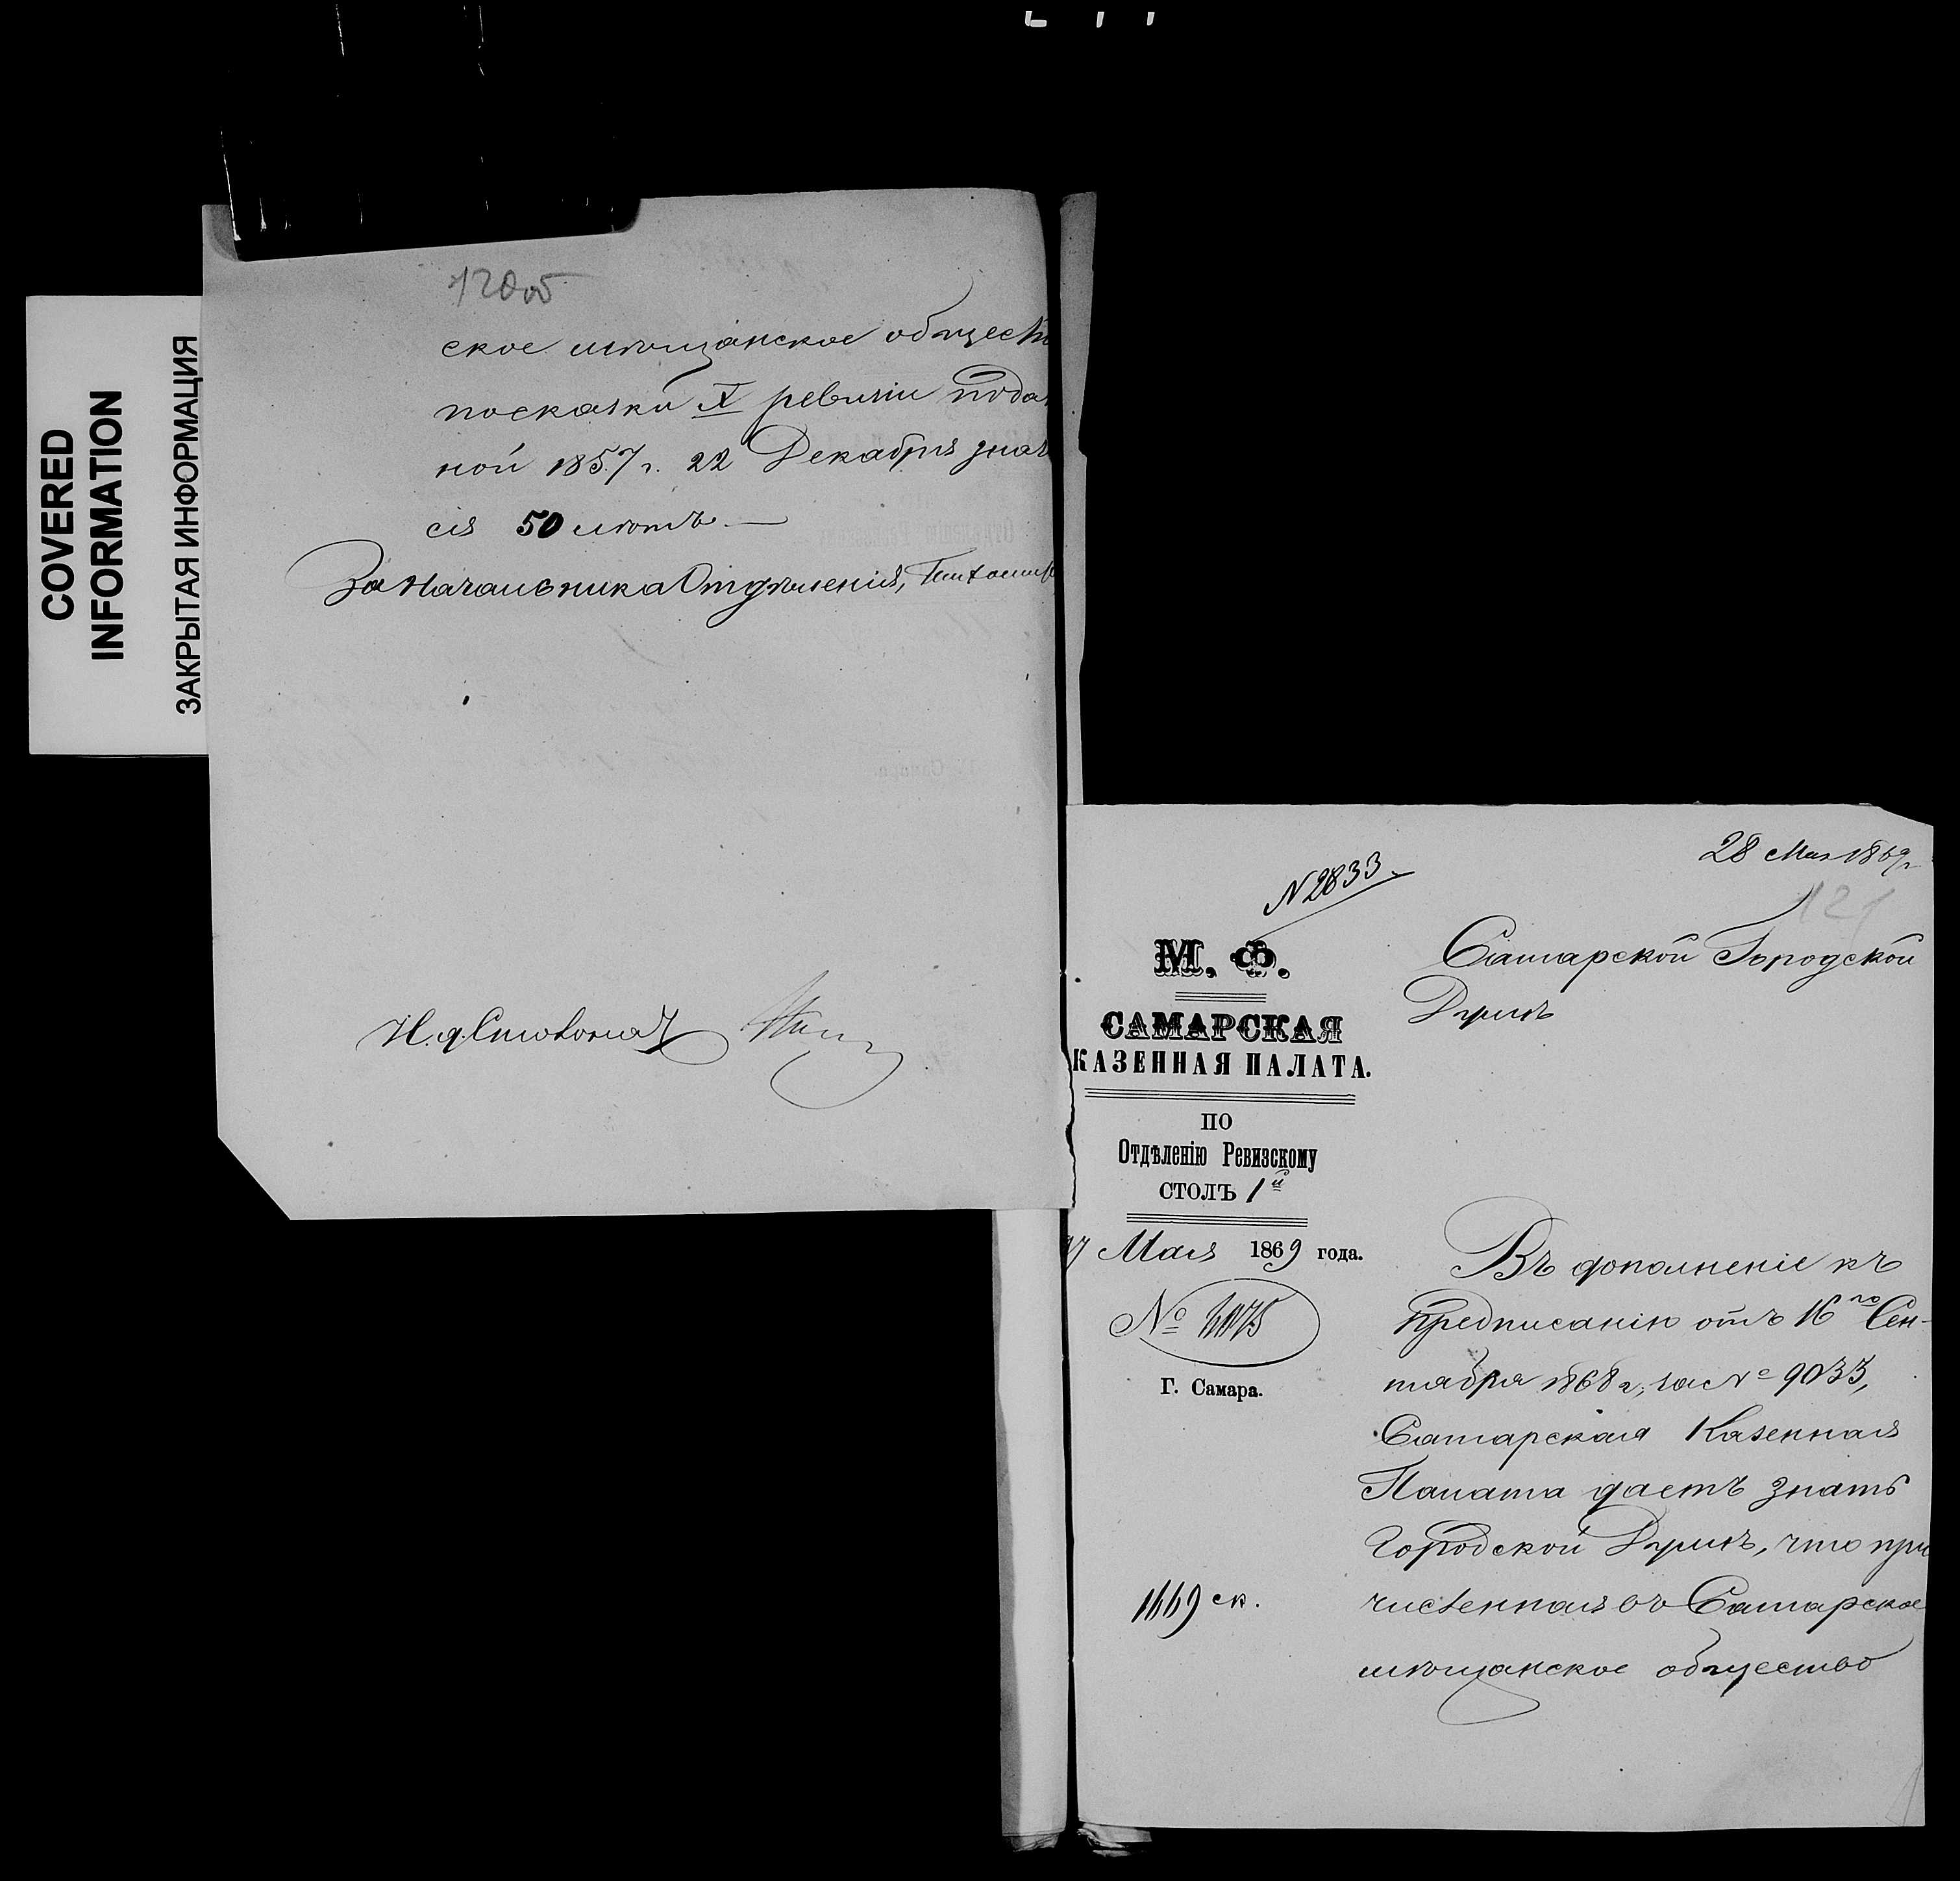 COVERED
INFORMATION
ЗАКРЫТАЯ ИНФОРМАЦИЯ
120об
ское мѣщанское общест
по сказки X ревизіи подан
ной 1857 г. 22 Декабря знач
ся 50 лѣтъ. —
За Начальника Отдѣленія,
И. д. Столонач
28 Мая 1869 г
121
N 2833.
М. Ф.
САМАРСКАЯ
КАЗЕННАЯ ПАЛАТА.
ПО
Отдѣленію Ревизскому
СТОЛЪ 1й
27 Мая 1869 года.
№ 4475
Г. Самара.
1669 ск.
Самарской Городской
Думѣ
Въ дополненіе къ
предписанію отъ 16го Сен-
тября 1868 г, за № 9033,
Самарская Казенная
Палата даетъ знать
Городской Думѣ, что при
численная въ Самарское
мѣщанское общество